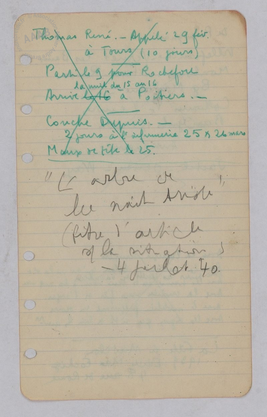 Thomas René. - Appelé 29 fév
à Tours (10 jours)
Parti le 9 pour Rochefort
la nuit du 15 au 16
Arrivé le 16 à Poitiers. -
Couché depuis. -
2 jours à l'infirmerie 25 & 26 mars
Maux de tête le 25.
"L'arbre de
la nuit
(titre d'article
s/ la situation)
- 4 juillet 40.